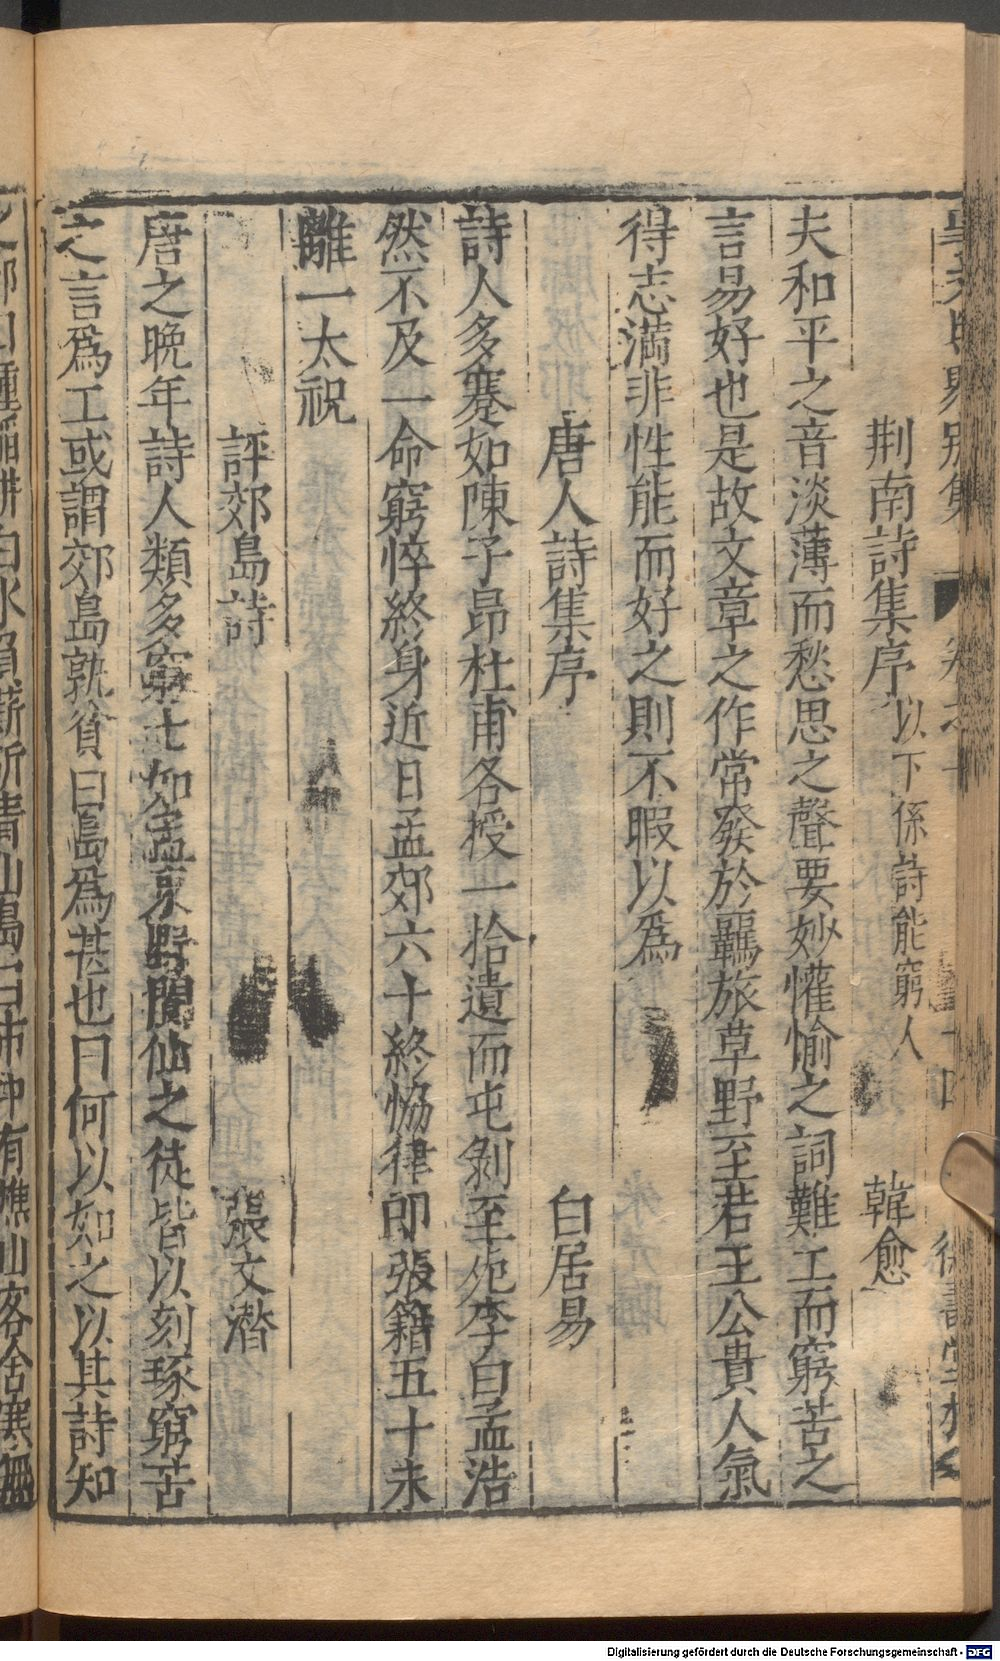 荆南詩集序 以下係詩能窮人 韓愈
夫和平之音淡薄而愁思之聲要妙懽愉之詞難工而窮苦之
言易好也是故文章之作常發於羈旅草野至若王公貴人氣
得志滿非性能而好之則不暇以爲
唐人詩集序 白居易
詩人多蹇如陳子昂杜甫各授一拾遺而屯剝至死李白孟浩
然不及一命窮悴終身近日孟郊六十終恊律卽張籍五十未
離一太祝
評郊島詩 張文潛
唐之晚年詩人類多窮士如孟東野閬仙之徒皆以刻琢窮苦
之言爲工或謂郊島孰貧曰島爲甚也曰何以知之以其詩知
Digitalisierung gefördert durch die Deutsche Forschungsgemeinschaft - DFG